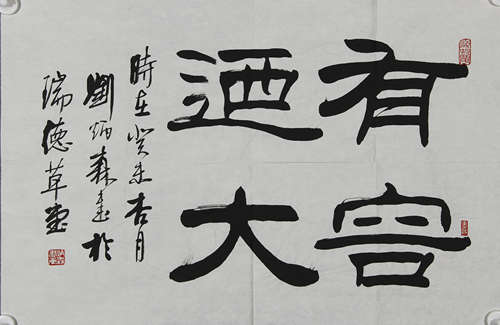 有容
迺大
時在癸未杏月
劉炳森書於
瑞德草堂